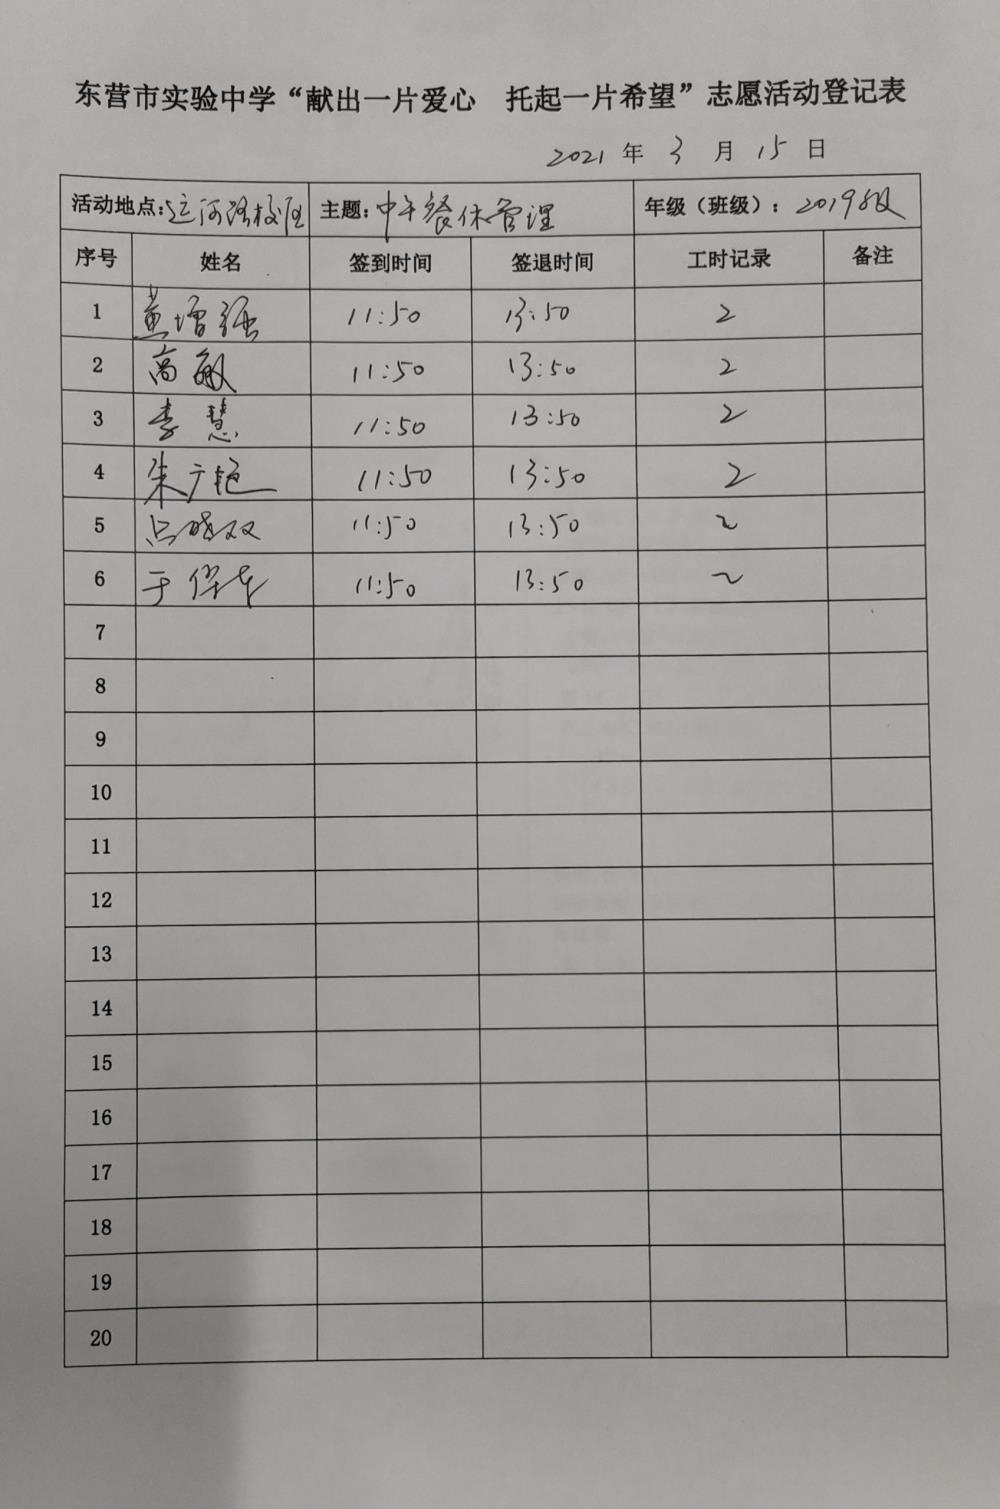 东营市实验中学“献出一片爱心 托起一片希望”志愿活动登记表
2021 年 3 月 15 日
活动地点:运河路校区 主题:中午餐休管理 年级（班级）: 2019级
序号 姓名 签到时间 签退时间 工时记录 备注
1 黄增强 11:50 13:50 2
2 高敏 11:50 13:50 2
3 李慧 11:50 13:50 2
4 朱广艳 11:50 13:50 2
5 吕晓双 11:50 13:50 2
6 于 11:50 13:50 2
7
8
9
10
11
12
13
14
15
16
17
18
19
20